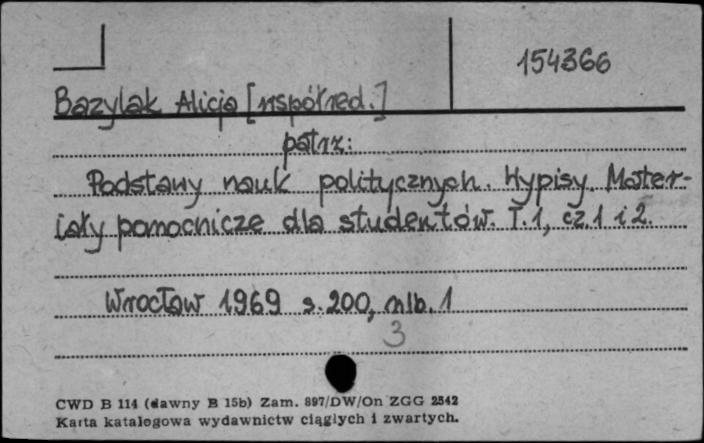 154366
Bazylak Alicja [współred.]
patrz:
Podstawy nauk politycznych. Wypisy. Mater-
iały pomocnicze dla studentów. T.1, cz.1 i 2.
Wrocław 1969 s. 200, nlb. 1
3
CWD B 114 (dawny B 15b) Zam. 897/DW/On ZGG 2542
Karta katalogowa wydawnictw ciągłych i zwartych.